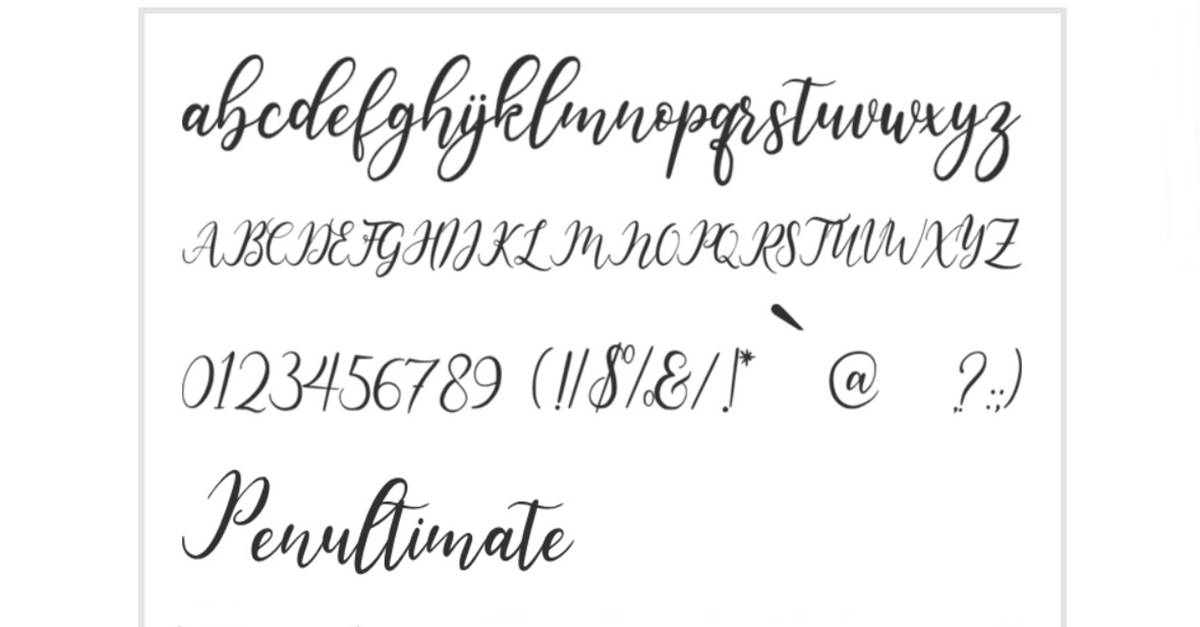 abcdefghijklmnopqrstuvwxyz
ABCDEFGHIJKLMNOPQRSTUVWXYZ
0123456789 (!//$%&/!*` @ ,?:;)
Penultimate